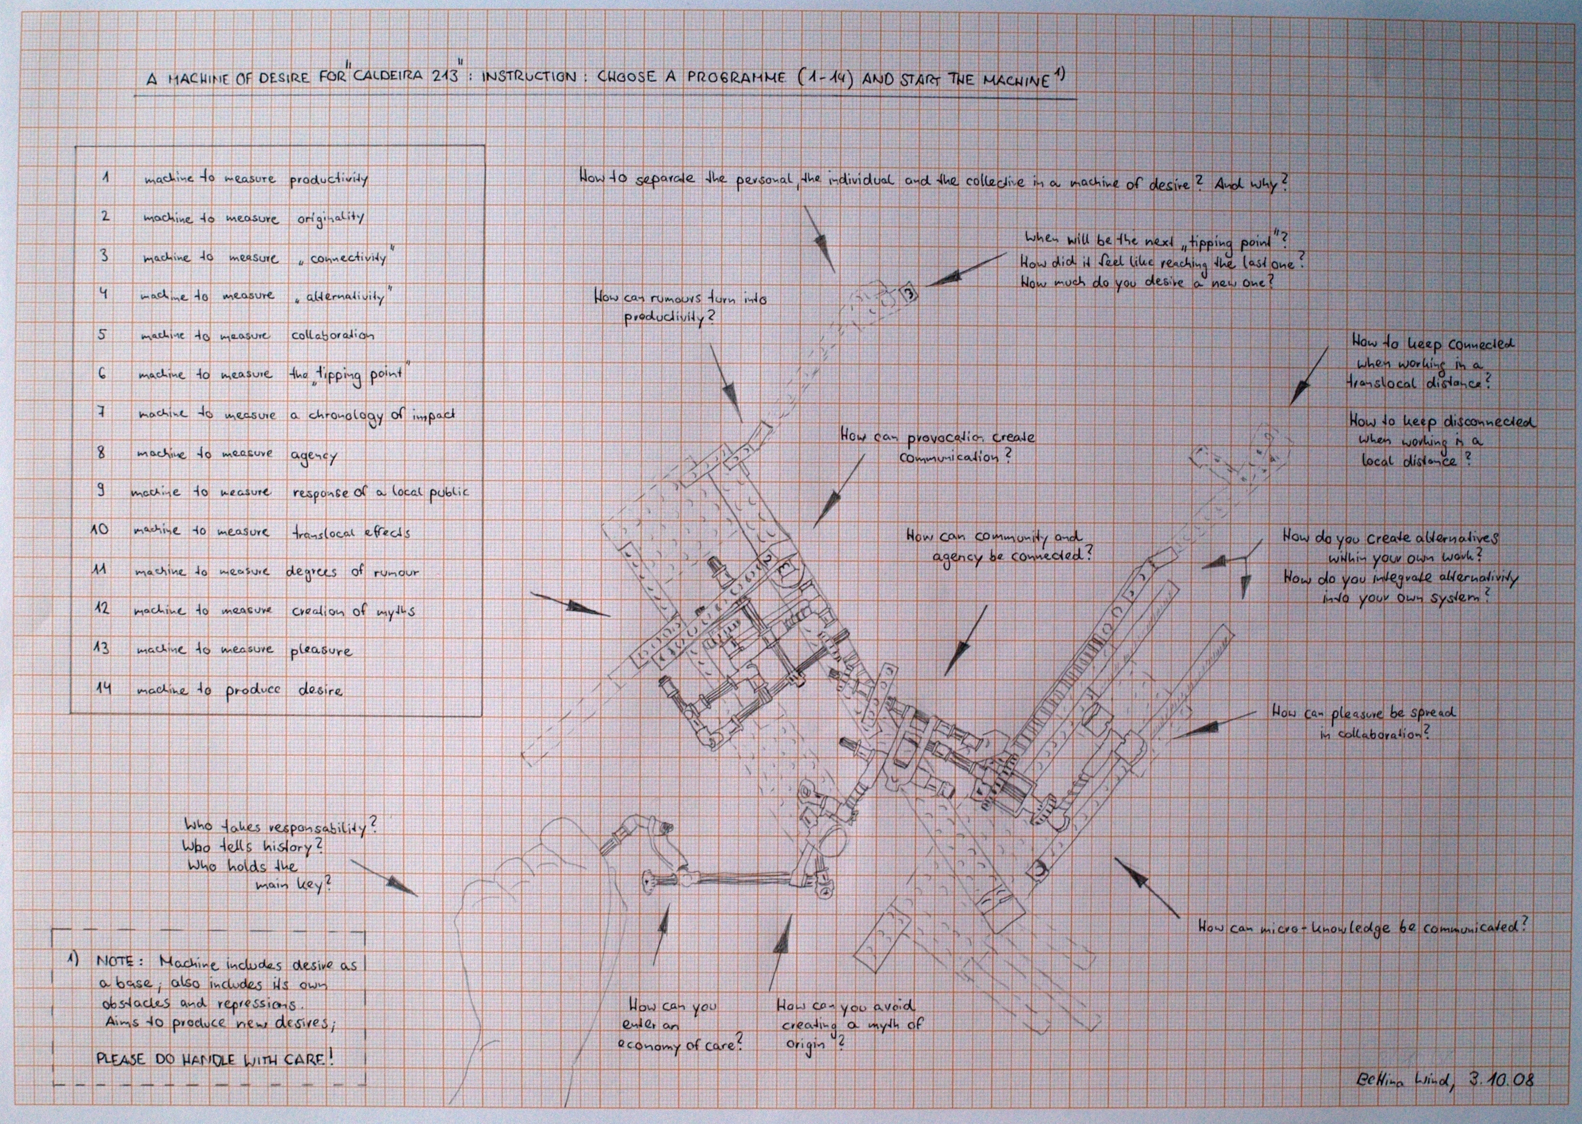 A MACHINE OF DESIRE FOR "CALDEIRA 213" : INSTRUCTION : CHOOSE A PROGRAMME (1-14) AND START THE MACHINE 1)
1 machine to measure productivity
2 machine to measure originality
3 machine to measure „connectivity"
4 machine to measure „alternativity"
5 machine to measure collaboration
6 machine to measure the „tipping point"
7 machine to measure a chronology of impact
8 machine to measure agency
9 machine to measure response of a local public
10 machine to measure translocal effects
11 machine to measure degrees of rumour
12 machine to measure creation of myths
13 machine to measure pleasure
14 machine to produce desire
How to separate the personal, the individual and the collective in a machine of desire? And why?
When will be the next „tipping point"?
How did it feel like reaching the last one?
How much do you desire a new one?
How can rumours turn into
productivity?
How to keep connected
when working in a
translocal distance?
How to keep disconnected
when working in a
local distance?
How can provocation create
communication?
How can community and
agency be connected?
How do you create alternatives
within your own work?
How do you integrate alternativity
into your own system?
How can pleasure be spread
in collaboration?
Who takes responsability?
Who tells history?
Who holds the
main key?
How can micro-knowledge be communicated?
1) NOTE: Machine includes desire as
a base; also includes its own
obstacles and repressions.
Aims to produce new desires;
PLEASE DO HANDLE WITH CARE!
How can you
enter an
economy of care?
How can you avoid
creating a myth of
origin?
Bettina Wind, 3.10.08